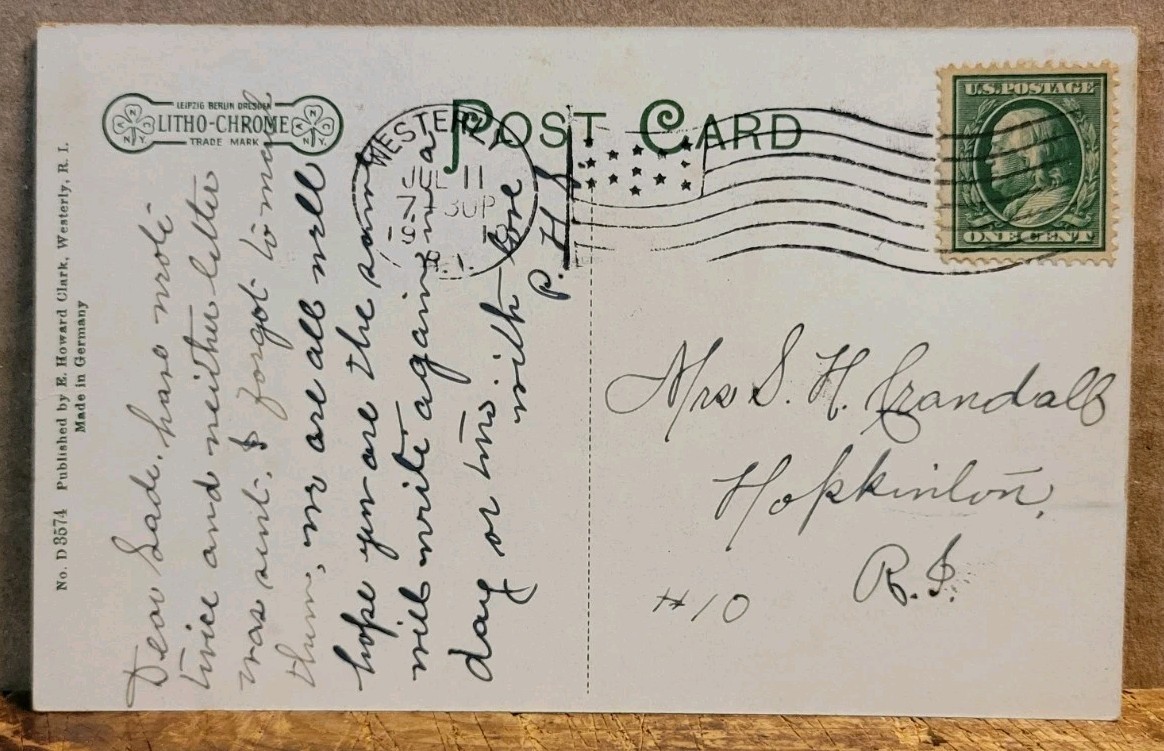 No. D 3574 Published by E. Howard Clark, Westerly, R. I.
Made in Germany
LEIPZIG BERLIN DRESDEN
LITHO-CHROME
TRADE MARK
N.Y.
N.Y.
POST CARD
WESTERLY
JUL 11
7-30P
R.I.
U.S. POSTAGE
ONE CENT
Dear Sade, have wrote
twice and neither letter
was sent. I forgot to mail
them, we are all well
hope you are the same
will write again in a
day or two. with love
P. H. L.
Mrs S. H. Crandall
Hopkinton,
R.I.
#10